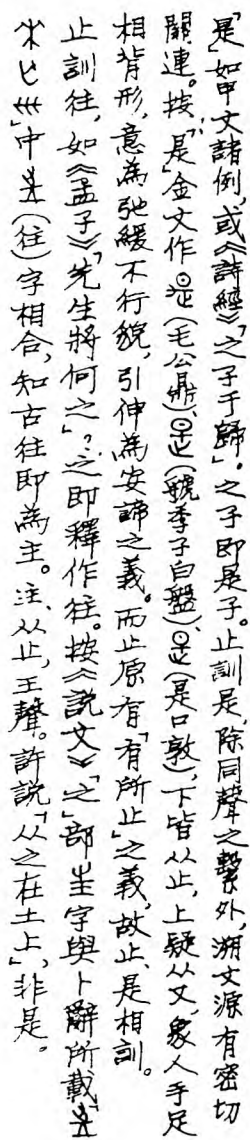 是」如甲文諸例,或《詩經》「之子于歸」。之子即是子。止訓是,除同聲之繫外,溯文源有密切
關連。按「是」金文作(毛公鼎)、(虢季子白盤)、(是口敦),下皆从止,上疑从又,象人手足
相背形,意為弛緩不行貌,引伸為安諦之義。而止原有「有所止」之義,故止、是相訓。
止訓往,如《孟子》「先生將何之」?之即釋作往。按《說文》「之」部㞷字與卜辭所載「㞷
」中㞷(往)字相合,知古往即為主。注、从止,王聲。許說「从之在土上」,非是。